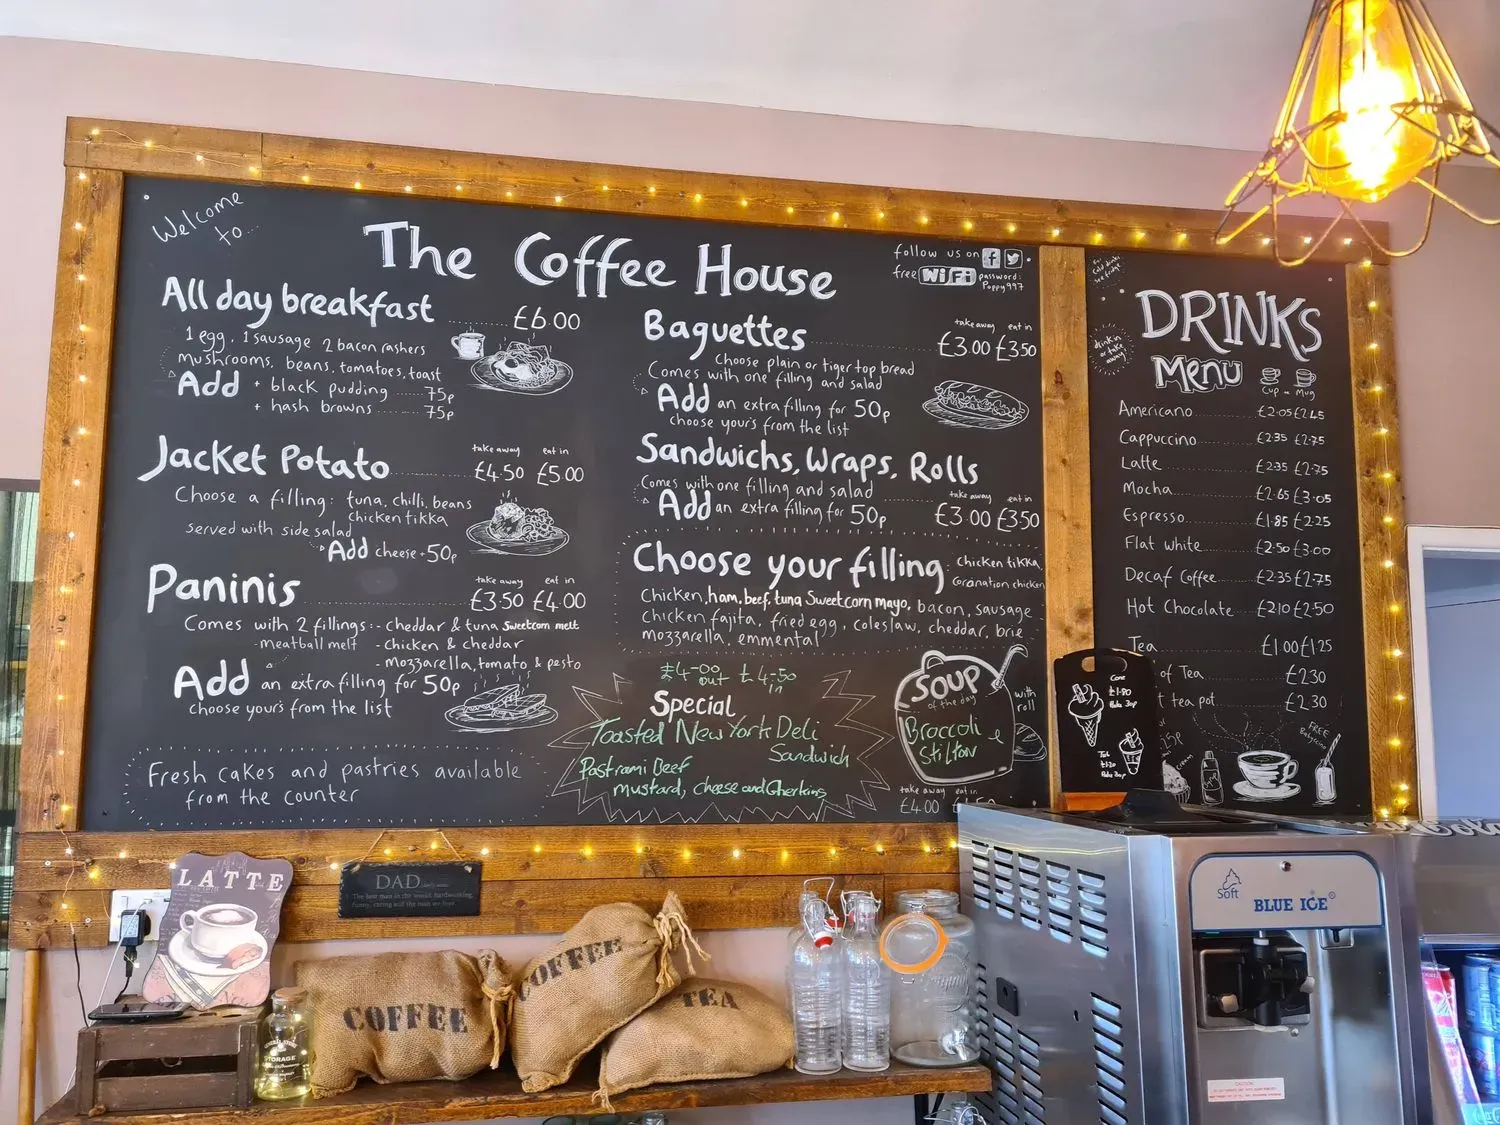 Welcome
to...
The Coffee House
follow us on
free WiFi password:
Poppy997
All day breakfast ........ £6.00
1 egg, 1 sausage 2 bacon rashers
mushrooms, beans, tomatoes, toast
Add + black pudding ...... 75p
+ hash browns ...... 75p
Jacket Potato
take away eat in
£4.50 £5.00
Choose a filling: tuna, chilli, beans
chicken tikka
served with side salad
Add cheese +50p
Paninis
take away eat in
£3.50 £4.00
Comes with 2 fillings:- cheddar & tuna Sweetcorn melt
-meatball melt - chicken & cheddar
- mozzarella, tomato & pesto
Add an extra filling for 50p
choose yours from the list
Fresh cakes and pastries available
from the counter
Baguettes
take away eat in
£3.00 £3.50
Choose plain or tiger top bread
Comes with one filling and salad
Add an extra filling for 50p
choose yours from the list
Sandwichs, Wraps, Rolls
Comes with one filling and salad
take away eat in
Add an extra filling for 50p £3.00 £3.50
Choose your filling: chicken tikka,
Coronation chicken
Chicken, ham, beef, tuna Sweetcorn mayo, bacon, sausage
Chicken fajita, fried egg, coleslaw, cheddar, brie
mozzarella, emmental
£4-00 £4-50
out in
Special
Toasted New York Deli
Sandwich
Pastrami Beef
mustard, cheese and Gherkins
SOUP
of the day
Broccoli &
Stilton
with
roll
take away eat in
£4.00
For
cold drinks
see fridge
drink in
or take
away!
DRINKS
Menu
Cup or Mug
Americano £2.05 £2.45
Cappuccino £2.35 £2.75
Latte £2.35 £2.75
Mocha £2.65 £3.05
Espresso £1.85 £2.25
Flat white £2.50 £3.00
Decaf Coffee £2.35 £2.75
Hot Chocolate £2.10 £2.50
Tea £1.00 £1.25
of Tea £2.30
t tea pot £2.30
FREE
Babycino
cream
Cone
£1.80
Flake 30p
Tub
£1.30
Flake 30p
LATTE
DAD
The best man in the world, hardworking,
COFFEE
COFFEE
TEA
STORAGE
Soft
BLUE ICE
CAUTION